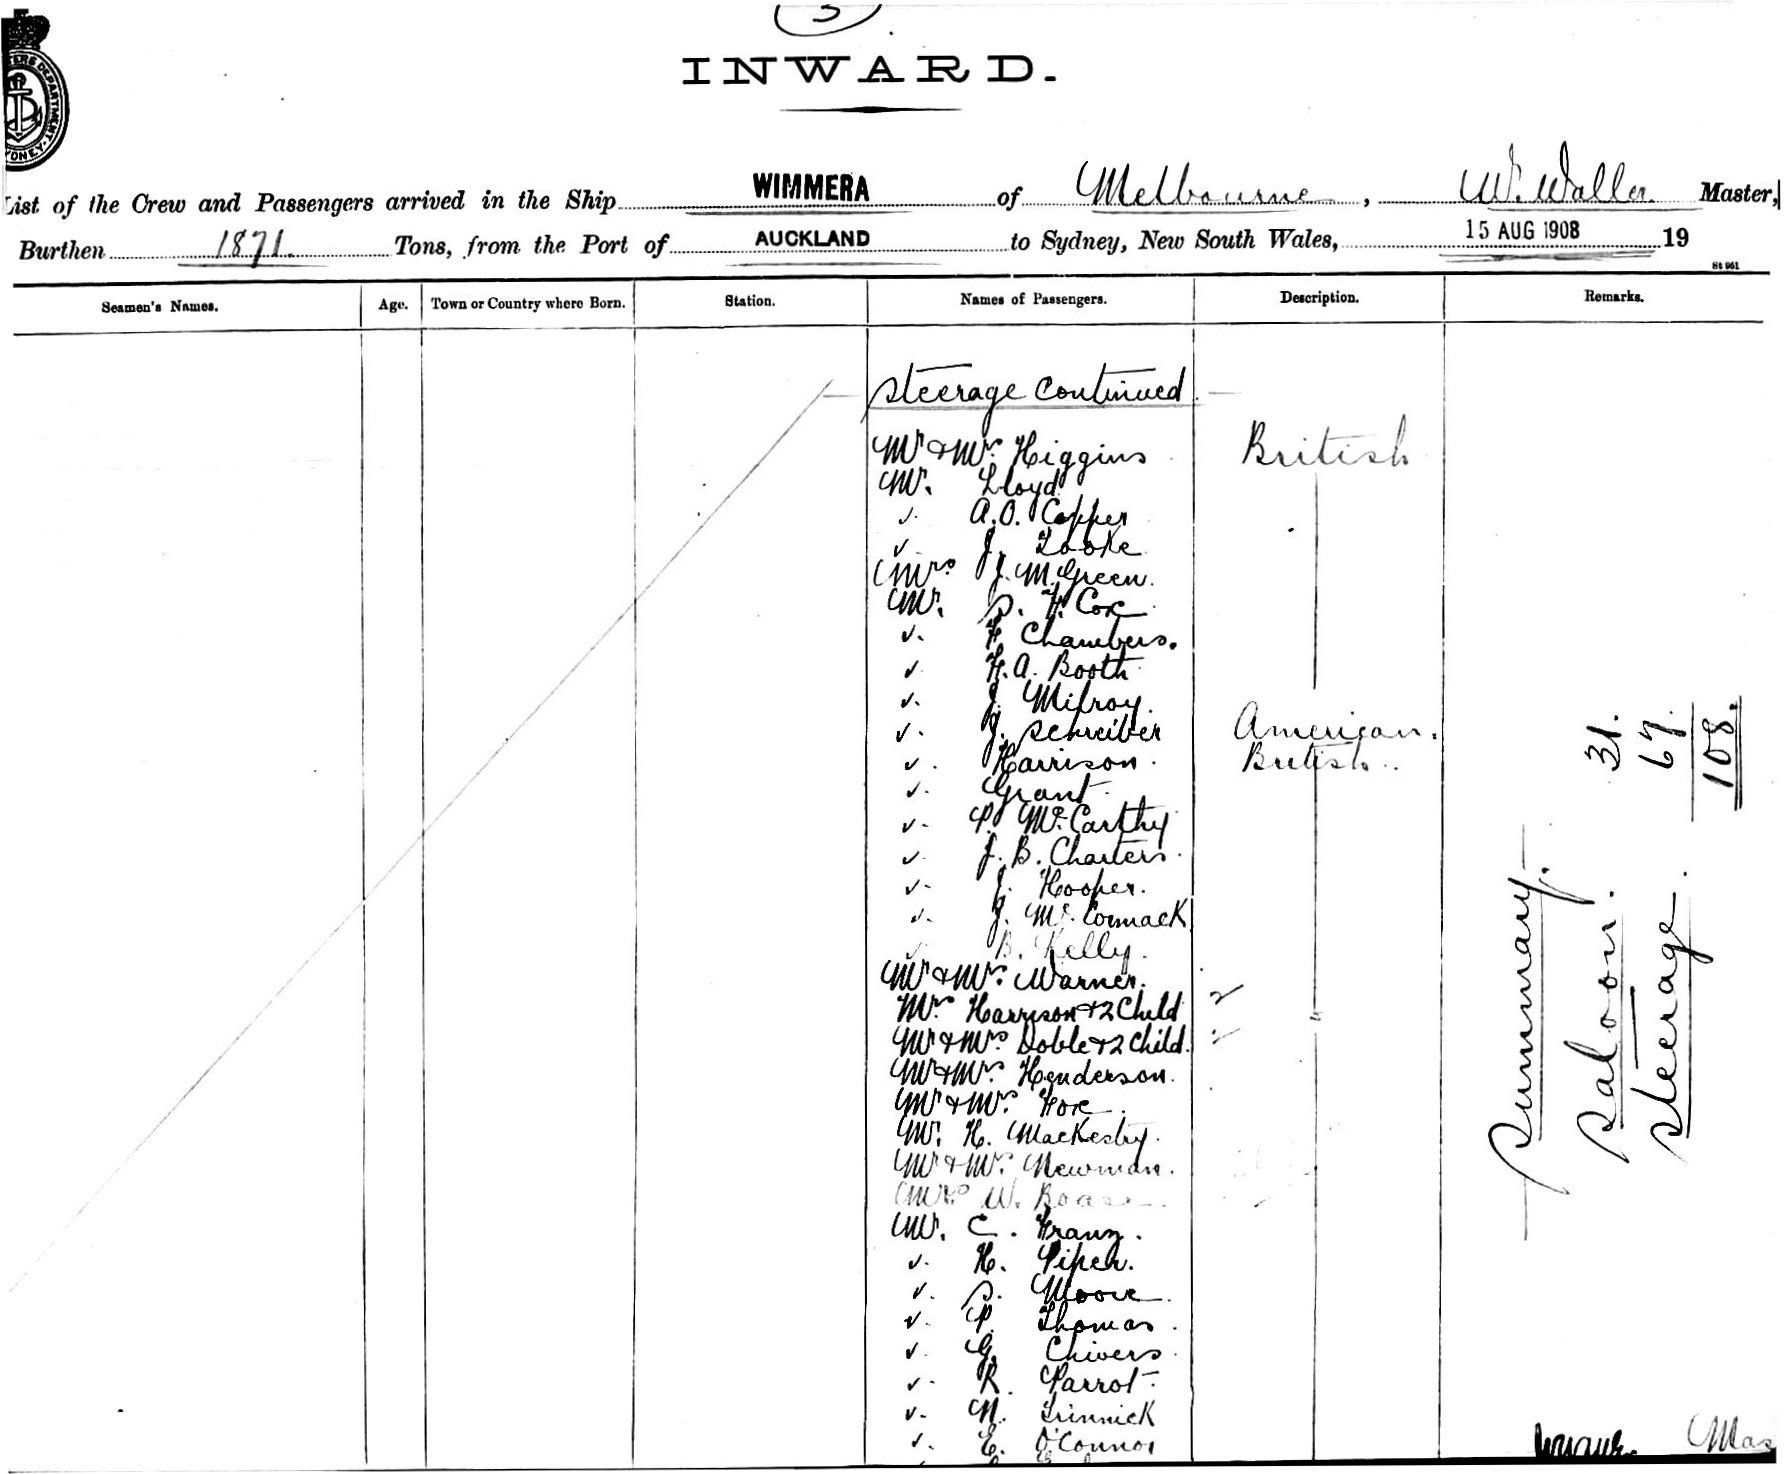 3
INWARD.
List of the Crew and Passengers arrived in the Ship WIMMERA of Melbourne, W. Waller Master,
Burthen 1871. Tons, from the Port of AUCKLAND to Sydney, New South Wales, 15 AUG 1908 19
St 961
Seamen's Names. Age. Town or Country where Born. Station. Names of Passengers. Description. Remarks.
Steerage Continued
Mr & Mrs Higgins British
Mr. Lloyd
A.O. Copper
J. Tooke
Mrs J. M. Green.
Mr. S. F. Cox
F Chambers.
F. A. Booth
J. Milroy.
J. Schreiber American.
Harrison. British.
Grant
P. McCarthy
J. B. Charters.
J. Hooper.
J. McCormack
B. Kelly.
Mr & Mrs Warner.
Mrs Harrison & 2 Child 2
Mr & Mrs Doble & 2 Child. 2
Mr & Mrs Henderson.
Mr & Mrs Fox.
Mr. H. Mackesby.
Mr & Mrs Newman.
Mrs W. Boase
Mr. C. Franz.
H. Piper.
S. Moore
P. Thomas.
G. Chivers.
R. Parrot.
N. Trinnick
E. O'Connor
Summary.
Saloon. 31.
Steerage. 67.
108.
Mas